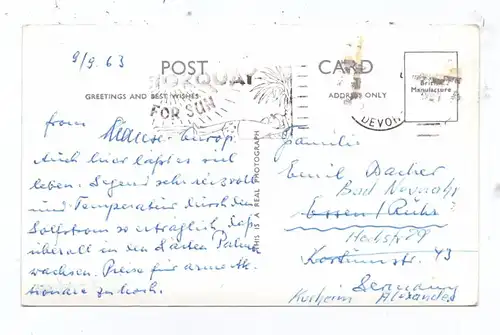 9/9. 63
POST CARD
TORQUAY
FOR SUN
GREETINGS AND BEST WISHES
ADDRESS ONLY
British
Manufacture
DEVON
THIS IS A REAL PHOTOGRAPH
from
Auch hier läßt es sich
leben. Gegend sehr reizvoll
und Temperatur durch den
Golfstrom so erträglich, daß
überall in den Gärten Palmen
wachsen. Preise für arme Ak-
tionäre zu hoch.
Familie
Emil Bacher
Bad Neuenahr
Essen / Ruhr
43
Germany
Kurheim Alexander